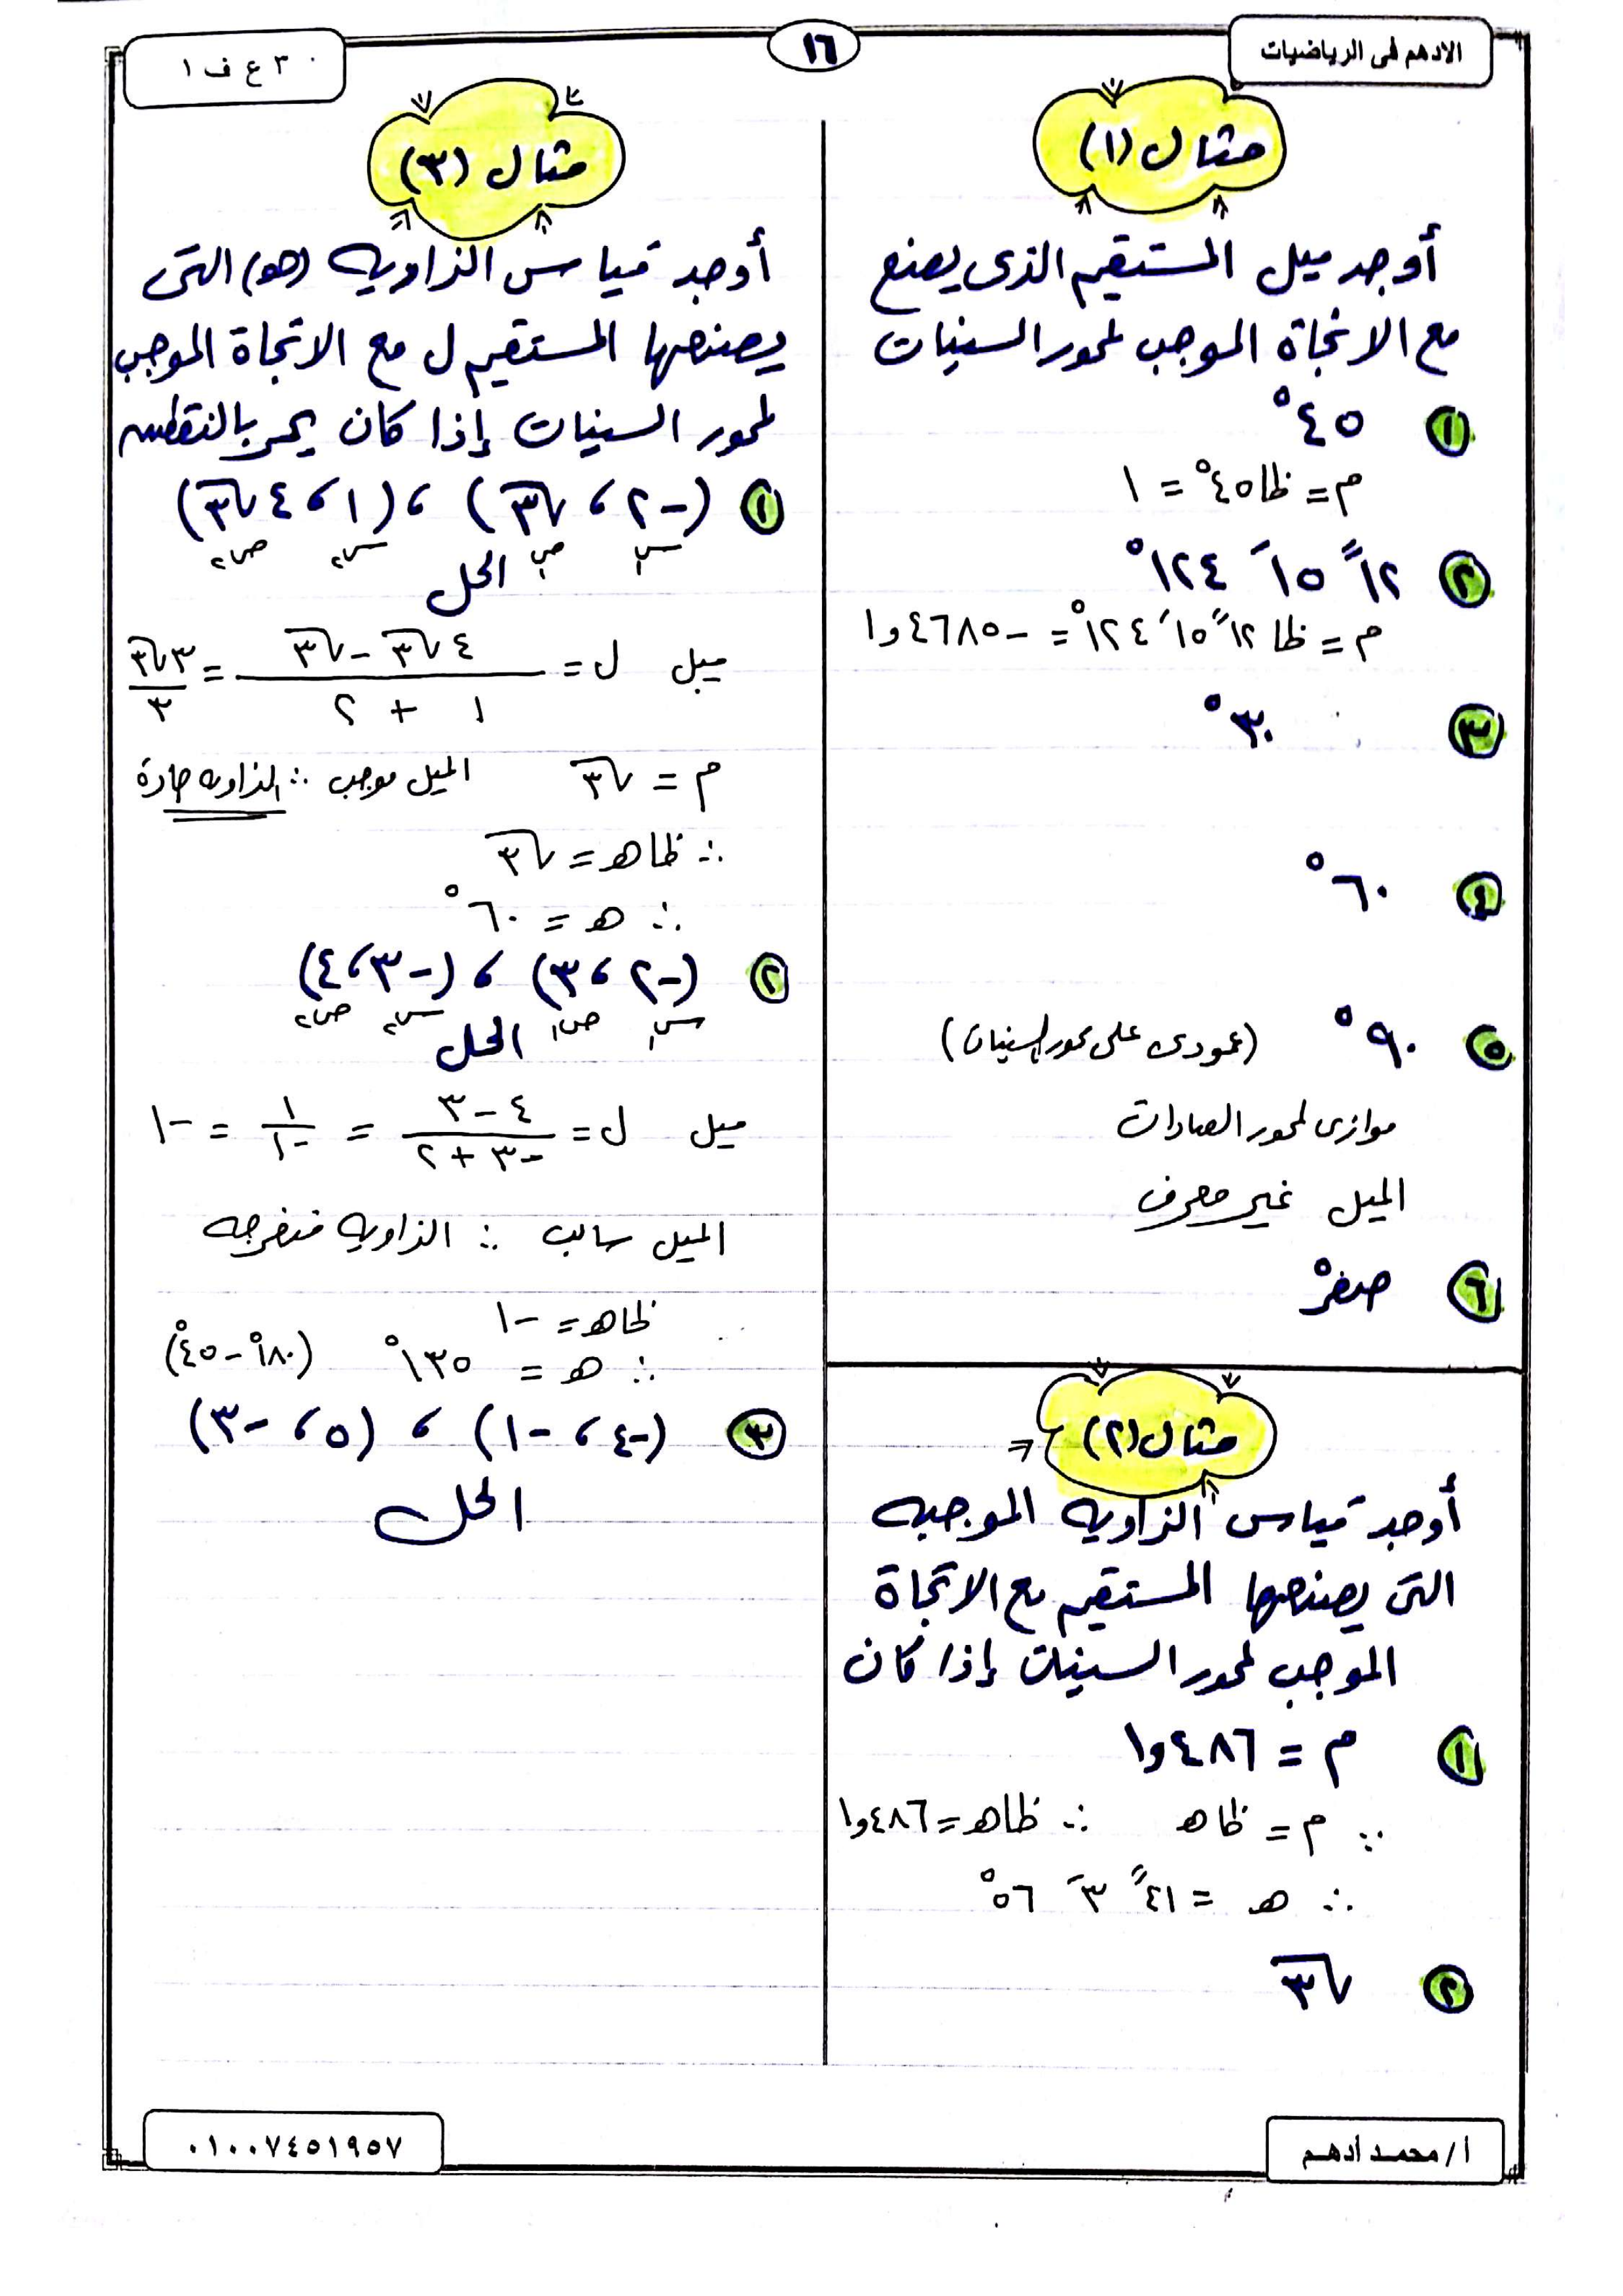 الادهم فى الرياضيات
١٦
٣ ع ف ١
مثال (١)
أوجد ميل المستقيم الذى يصنع
مع الاتجاة الموجب لمحور السينات
١ ٤٥°
م = ظا ٤٥° = ١
٢ ١٢ً ١٥َ ١٢٤°
م = ظا ١٢ً ١٥َ ١٢٤° = -١٫٤٦٨٥
٣ ٣٠°
٤ ٦٠°
٥ ٩٠° (عمودى على محور السينات)
موازى لمحور الصادات
الميل غير معرف
٦ صفر°
مثال (٢)
أوجد قياس الزاويه الموجبه
التى يصنعها المستقيم مع الاتجاة
الموجب لمحور السينات إذا كان
١ م = ١٫٤٨٦
∵ م = ظا هـ ∴ ظا هـ = ١٫٤٨٦
∴ هـ = ٤١ً ٣َ ٥٦°
٢ √٣
مثال (٣)
أوجد قياس الزاويه (هـ) التى
يصنعها المستقيم ل مع الاتجاة الموجب
لمحور السينات إذا كان يمر بالنقطتين
١ (-٢ ، √٣) ، (١ ، ٤√٣)
س١ ص١ س٢ ص٢
الحل
ميل ل = (٤√٣ - √٣)/(١ + ٢) = ٣√٣/٣
م = √٣ الميل موجب ∴ الزاويه حادة
∴ ظا هـ = √٣
∴ هـ = ٦٠°
٢ (-٢ ، ٣) ، (-٣ ، ٤)
س١ ص١ س٢ ص٢
الحل
ميل ل = (٤ - ٣)/(-٣ + ٢) = ١/-١ = -١
الميل سالب ∴ الزاويه منفرجه
ظا هـ = -١
∴ هـ = ١٣٥° (١٨٠° - ٤٥°)
٣ (-٤ ، -١) ، (٥ ، -٣)
الحل
أ / محمد أدهم
٠١٠٠٧٤٥١٩٥٧